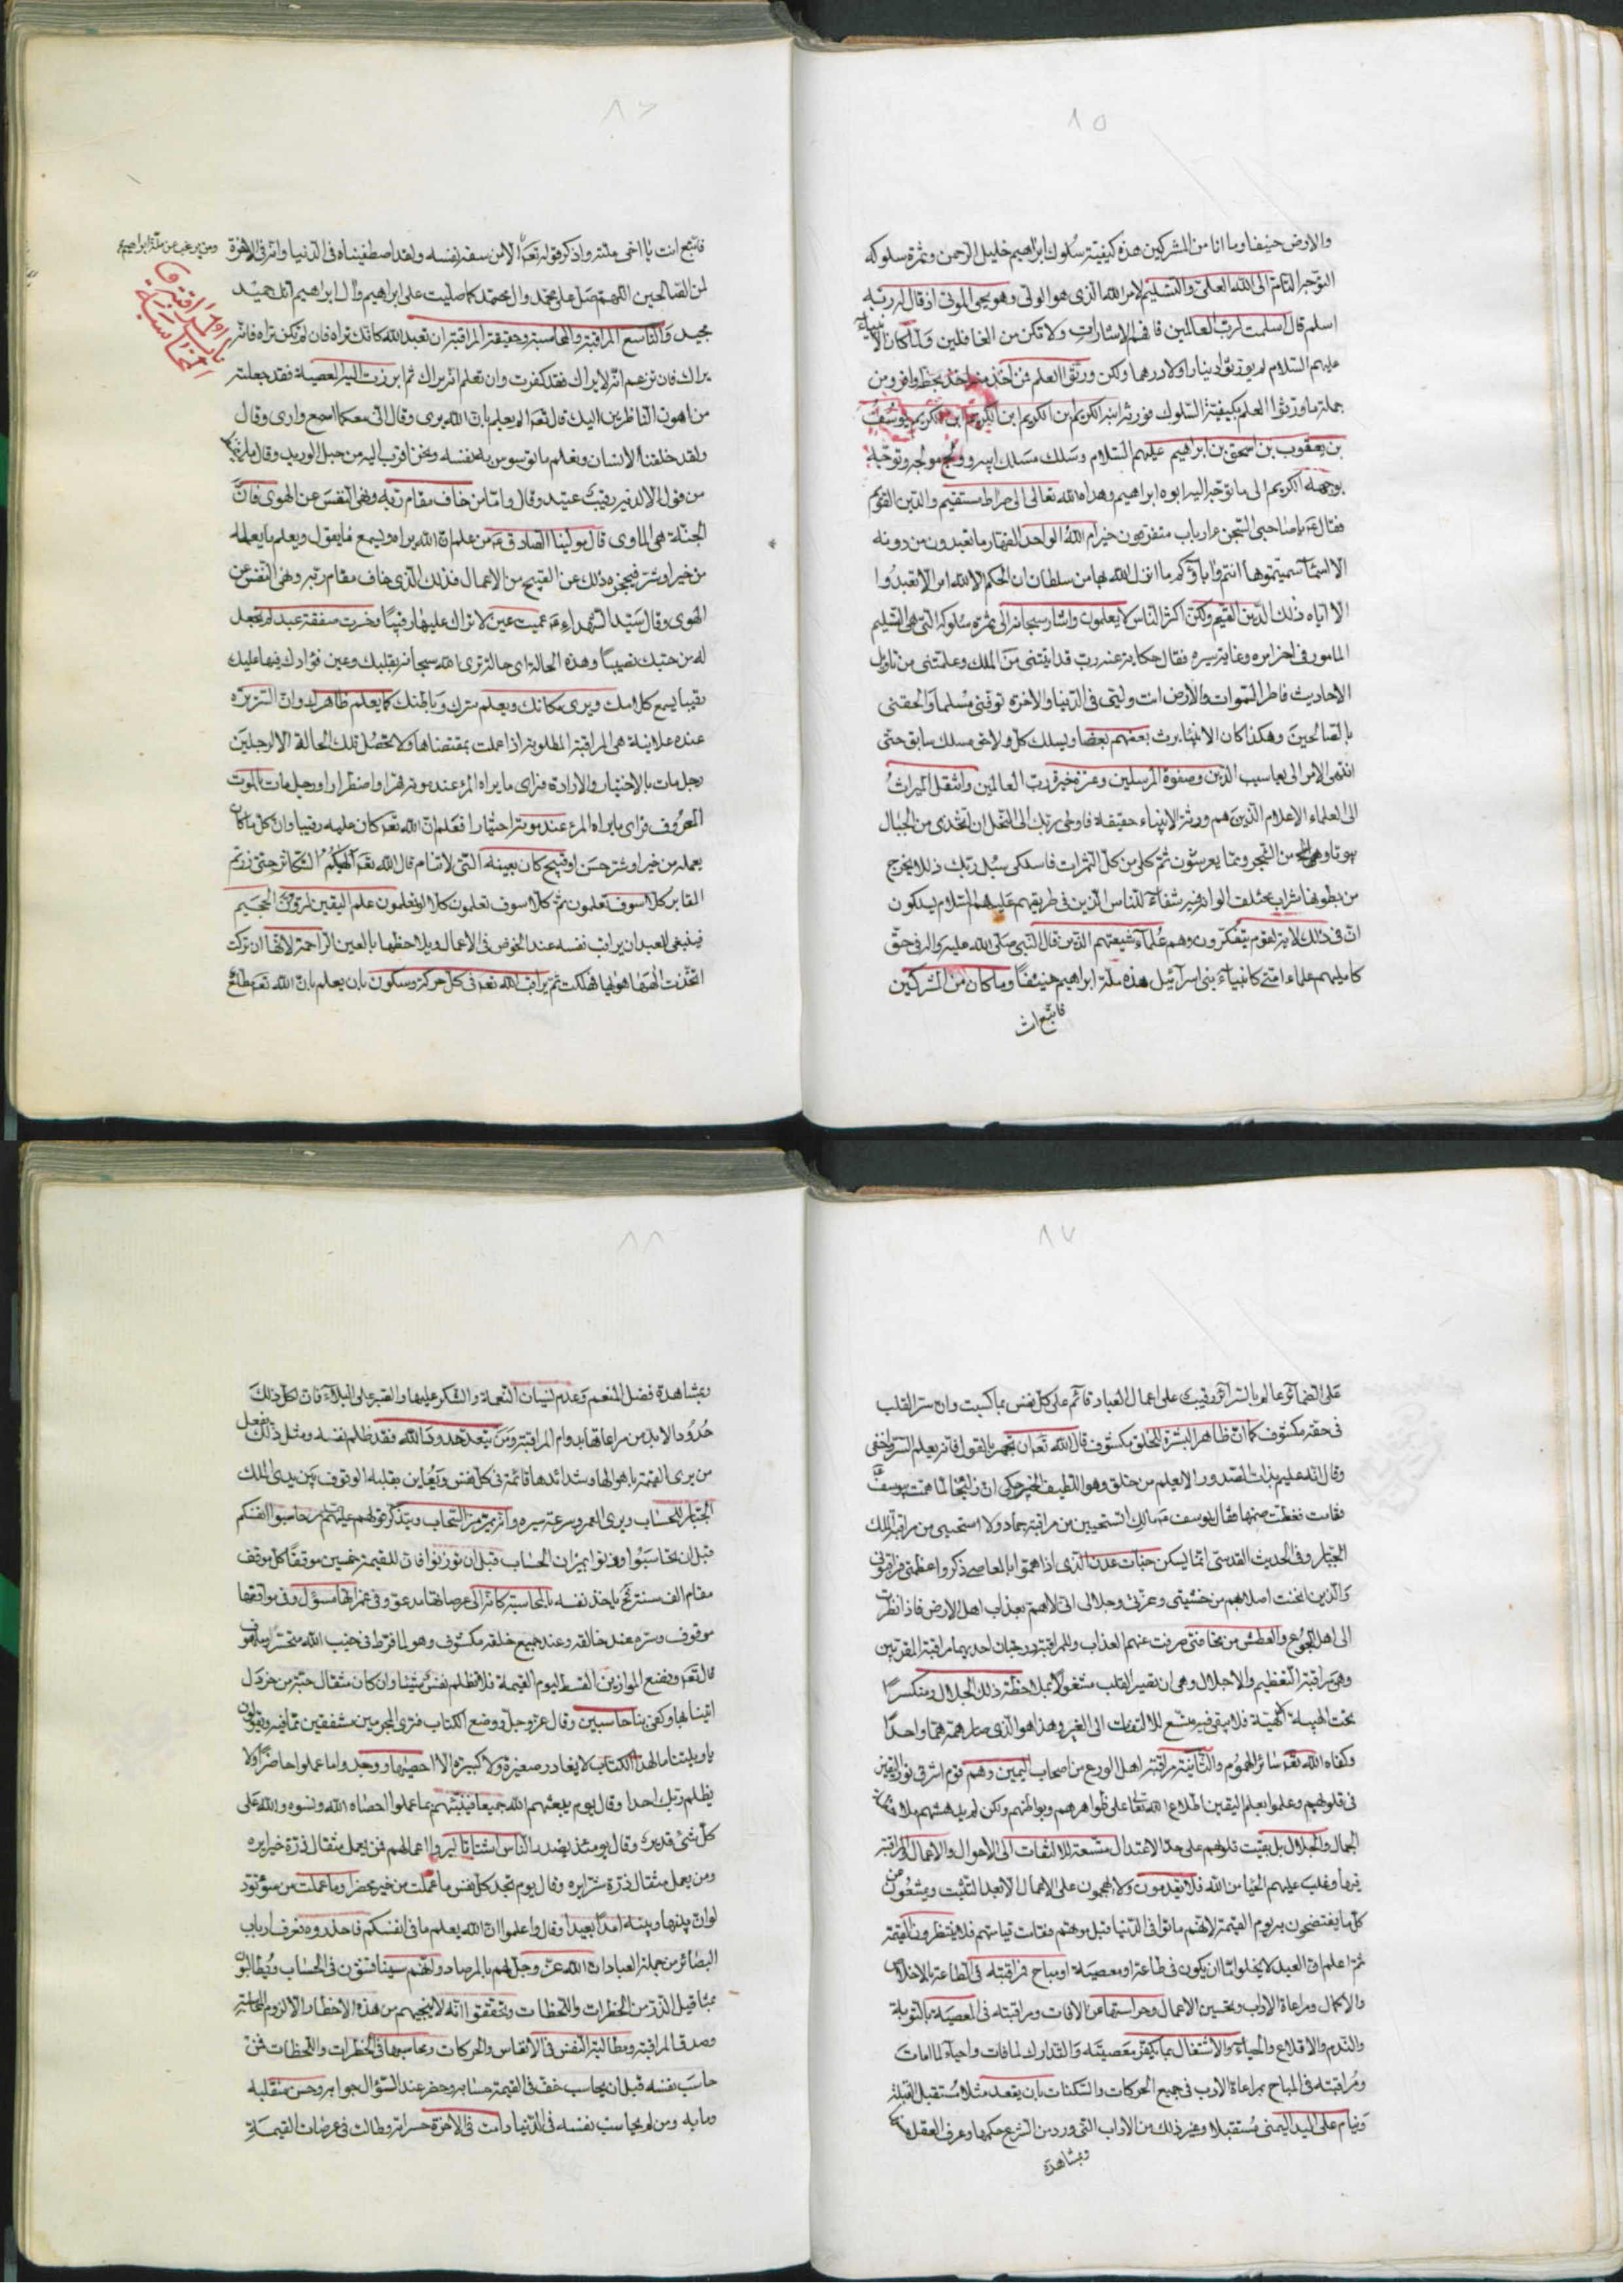 ٨٥
والارض حنيفا وما انا من المشركين هذه كيفيته سلوك ابراهيم خليل الرحمن وثمرة سلوكه
التوجه التام الى الله العلى والتسليم لامر الله الذى هو الولى وهو يحيى الموتى اذ قال له ربه
اسلم قال اسلمت لرب العالمين فافهم الاشارات ولا تكن من الغافلين ولما كان الانبياء
عليهم السلام لم يورثوا دينارا ولا درهما ولكن ورثوا العلم فمن اخذ منه اخذ بحظ وافر ومن
جملة ما ورثوا العلم بكيفية السلوك فورثه ابنه الكريم بن الكريم ابن الكريم ابن الكريم يوسف
بن يعقوب بن اسحق بن ابراهيم عليهم السلام وسلك مسلك ابيه وولج مولجه وتوجه
بوجهه الكريم الى ما توجه اليه ابوه ابراهيم وهداه الله تعالى الى صراط مستقيم والدين القويم
فقال يا صاحبى السجن ءارباب متفرقون خير ام الله الواحد القهار ما تعبدون من دونه
الا اسماء سميتموها انتم واباؤكم ما انزل الله بها من سلطان ان الحكم الا لله امر الا تعبدوا
الا اياه ذلك الدين القيم ولكن اكثر الناس لا يعلمون واشار سبحانه الى ثمرة سلوكه التى هى التسليم
المامور فى اخر امره وغاية سيره فقال حكاية عنه رب قد اتيتنى من الملك وعلمتنى من تاويل
الاحاديث فاطر السموات والارض انت وليى فى الدنيا والاخرة توفنى مسلما والحقنى
بالصالحين وهكذا كان الانبياء يرث بعضهم بعضا ويسلك كل ولاحق مسلك سابق حتى
انتهى الامر الى يعاسيب الدين وصفوة المرسلين وعترة خيرة رب العالمين وانتقل الميراث
الى العلماء الاعلام الذين هم ورثة الانبياء حقيقة فاوحى ربك الى النحل ان اتخذى من الجبال
بيوتا ومن الشجر ومما يعرشون ثم كلى من كل الثمرات فاسلكى سبل ربك ذللا يخرج
من بطونها شراب مختلف الوانه فيه شفاء للناس الذين فى طريقهم عليهم السلام يسلكون
ان فى ذلك لاية لقوم يتفكرون وهم علماء شيعتهم الذين قال النبى صلى الله عليه واله فى حق
كامليهم علماء امتى كانبياء بنى اسرائيل هذه ملة ابراهيم حنيفا وما كان من المشركين
فاتبع انت
٨٦
فاتبع انت يا اخى ملته واذكر قوله تعالى الا من سفه نفسه ولقد اصطفيناه فى الدنيا وانه فى الاخرة
ومن يرغب عن ملة ابراهيم
لمن الصالحين اللهم صل على محمد وال محمد كما صليت على ابراهيم وال ابراهيم انك حميد
مجيد والتاسع المراقبة والمحاسبة وحقيقة المراقبة ان تعبد الله كانك تراه فان لم تكن تراه فانه
يراك فان تزعم انه لا يراك فقد كفرت وان تعلم انه يراك ثم ابرزت اليه المعصية فقد جعلته
من اهون الناظرين اليك قال تعالى الم يعلم بان الله يرى وقال انى معكما اسمع وارى وقال
ولقد خلقنا الانسان ونعلم ما توسوس به نفسه ونحن اقرب اليه من حبل الوريد وقال ما يلفظ
من قول الا لديه رقيب عتيد وقال واما من خاف مقام ربه ونهى النفس عن الهوى فان
الجنة هى الماوى قال مولينا الصادق من علم ان الله يراه ويسمع ما يقول ويعلم ما يعمله
من خير او شر فيحجزه ذلك عن القبيح من الاعمال فذلك الذى خاف مقام ربه ونهى النفس عن
الهوى وقال سيد الشهداء عميت عين لا تراك عليها رقيبا وخسرت صفقة عبد لم تجعل
له من حبك نصيبا وهذه الحالة اى حالة ترى الله سبحانه بقلبك وعين فؤادك فيها عليك
رقيبا يسمع كلامك ويرى مكانك ويعلم سرك وباطنك كما يعلم ظاهرك وان السريرة
عنده علانية هى المراقبة المطلوبة اذا عملت بمقتضاها ولا تحصل تلك الحالة الا لرجلين
رجل مات بالاختيار والارادة فراى ما يراه المرء عند موته قهرا واضطرارا ورجل مات بالموت
المعروف فراى ما يراه المرء عند موته اجبارا فعلم ان الله تعالى كان عليه رقيبا وان كل ما كان
يعمله من خير او شر حسن او قبيح كان بعينه التى لا تنام قال الله تعالى الهيكم التكاثر حتى زرتم
المقابر كلا سوف تعلمون ثم كلا سوف تعلمون كلا لو تعلمون علم اليقين لترون الجحيم
فينبغى للعبد ان يراقب نفسه عند الخوض فى الاعمال ويلاحظها بالعين الراحمة لانها ان تركت
اتخذت الهها هويها فهلكت ثم يراقب الله تعالى فى كل حركة وسكون بان يعلم بان الله تعالى مطلع
٨٧
على الضمائر عالم بالسرائر رقيب على اعمال العباد قائم على كل نفس بما كسبت وان سر القلب
فى حقه مكشوف كما ان ظاهر البشرة للخلق مكشوف قال الله تعالى ان تجهر بالقول فانه يعلم السر واخفى
وقال انه عليم بذات الصدور الا يعلم من خلق وهو اللطيف الخبير حكى ان زليخا لما همت بيوسف
فقامت فغطت صنمها فقال يوسف مالك اتستحيين من مراقبة جماد ولا استحيى من مراقبة الملك
الجبار وفى الحديث القدسى انما يسكن جنات عدن الذى اذا هموا بالمعاصى ذكروا عظمتى فراقبونى
والذين انحنت اصلابهم من خشيتى وعزتى وجلالى انى لاهم بعذاب اهل الارض فاذا نظرت
الى اهل الجوع والعطش من مخافتى صرفت عنهم العذاب وللمراقبة درجتان احديهما مراقبة المقربين
وهى مراقبة التعظيم والاجلال وهى ان يصير القلب مشغولا بملاحظة ذلك الجلال ومنكسرا
تحت الهيبة الهيته فلا يبقى فيه متسع للالتفات الى الغير وهذا هو الذى صار همه هما واحدا
وكفاه الله تعالى سائر الهموم والثانية مراقبة اهل الورع من اصحاب اليمين وهم قوم اشرق نور اليقين
فى قلوبهم وعلموا بعلم اليقين اطلاع الله تعالى على ظواهرهم وبواطنهم ولكن لم يدهشهم ملاحظة
الجمال والجلال بل بقيت قلوبهم على حد الاعتدال متسعة للالتفات الى الاحوال والاعمال والمراقبة
فيها وغلب عليهم الحيا من الله فلا يقدمون ولا يحجمون على الاعمال الا بعد التثبت ويمتنعون من
كل ما يفتضحون به يوم القيمة لانهم ماتوا فى الدنيا قبل موتهم وقامت قيامتهم فلا ينتظرون القيمة
ثم اعلم ان العبد لا يخلو اما ان يكون فى طاعة او معصية او مباح فمراقبته فى الطاعة بالاخلاص
والاكمال ومراعاة الاداب وتحسين الاعمال وحراستها من الافات ومراقبته فى المعصية بالتوبة
والندم والاقلاع والحياء والاشتغال بما يكفر معصيته والتدارك لما فات واحياء لما امات
ومراقبته فى المباح بمراعاة الادب فى جميع الحركات والسكنات بان يقعد مثلا مستقبل القبلة
وينام على اليد اليمنى مستقبلا وغير ذلك من الاداب التى ورد من الشرع حكمها وعرف العقل
وبمشاهدة
٨٨
وبمشاهدة فضل المنعم وعدم نسيان النعمة والشكر عليها والصبر على البلاء فان لكل ذلك
حدودا لا بد من مراعاتها بدوام المراقبة ومن يتعد حدود الله فقد ظلم نفسه ومثل ذلك يفعل
من يرى القيمة باهوالها وشدائدها قائمة فى كل نفس ويعاين بقلبه الوقوف بين يدى الملك
الجبار للحساب ويرى العمر وسرعة سيره وانه يمر مر السحاب ويتذكر قولهم عليهم السلام حاسبوا انفسكم
قبل ان تحاسبوا وزنوا بميزان الحساب قبل ان توزنوا فان للقيمة خمسين موقفا كل موقف
مقام الف سنة فح ياخذ نفسه بالمحاسبة كانه الى عرصاتها مدعو وفى غمراتها مسؤل وفى مواقفها
موقوف وسره عند خالقه وعند جميع خلقه مكشوف وهو لما فرط فى جنب الله متحسر ملهوف
قال تعالى ونضع الموازين القسط ليوم القيمة فلا تظلم نفس شيئا وان كان مثقال حبة من خردل
اتينا بها وكفى بنا حاسبين وقال عز وجل ووضع الكتاب فترى المجرمين مشفقين مما فيه ويقولون
يا ويلتنا مال هذا الكتاب لا يغادر صغيرة ولا كبيرة الا احصيها ووجدوا ما عملوا حاضرا ولا
يظلم ربك احدا وقال يوم يبعثهم الله جميعا فينبئهم بما عملوا احصاه الله ونسوه والله على
كل شئ قدير وقال يومئذ يصدر الناس اشتاتا ليروا اعمالهم فمن يعمل مثقال ذرة خيرا يره
ومن يعمل مثقال ذرة شرا يره وقال يوم تجد كل نفس ما عملت من خير محضرا وما عملت من سوء تود
لو ان بينها وبينه امدا بعيدا وقال واعلموا ان الله يعلم ما فى انفسكم فاحذروه فعرف ارباب
البصائر من جملة العباد ان الله عز وجل لهم بالمرصاد وانهم سيناقشون فى الحساب ويطالبون
بمثاقيل الذر من الخطرات واللحظات وتحققوا انه لا ينجيهم من هذه الاخطار الا لزوم المحاسبة
وصدق المراقبة ومطالبة النفس فى الانفاس والحركات ومحاسبتها فى الخطرات واللحظات فمن
حاسب نفسه قبل ان يحاسب خف فى القيمة حسابه وحضر عند السؤال جوابه وحسن منقلبه
ومابه ومن لم يحاسب نفسه فى الدنيا دامت فى الاخرة حسراته وطالت فى عرصات القيمة